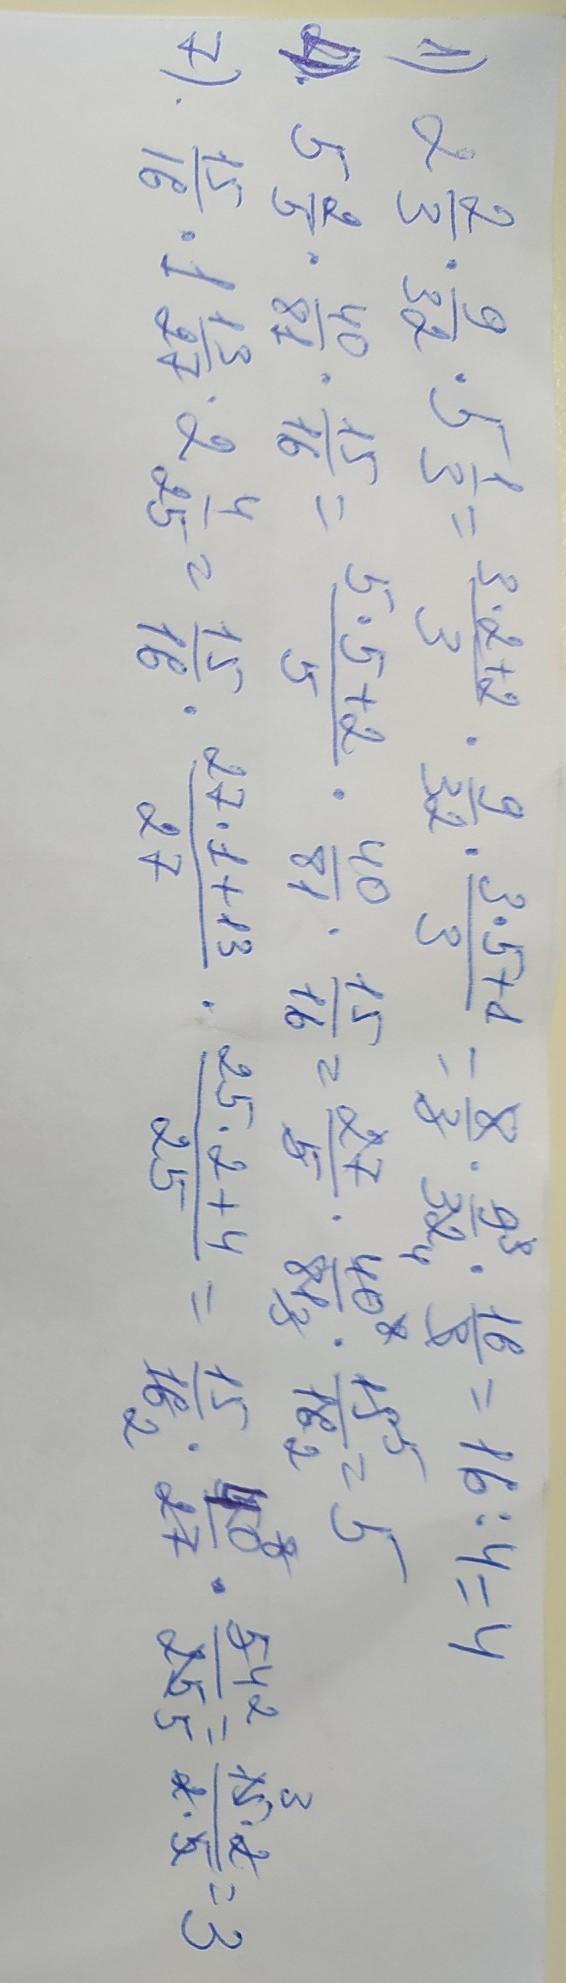 1) 2 2/3 · 9/32 · 5 1/3 = (3·2+2)/3 · 9/32 · (3·5+1)/3 = 8/3 · 9³/32₄ · 16/3 = 16:4=4
4). 5 2/5 · 40/81 · 15/16 = (5·5+2)/5 · 40/81 · 15/16 = 27/5 · 40⁸/81₃ · 15⁵/16₂ = 5
7). 15/16 · 1 13/27 · 2 4/25 = 15/16 · (27·1+13)/27 · (25·2+4)/25 = 15/16₂ · 40⁸/27 · 54²/25₅ = (15³·2)/(2·5) = 3